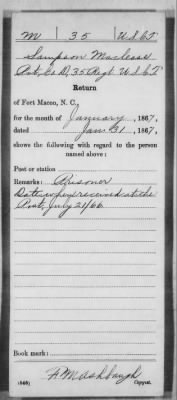 M | 35 | U.S.C.T.
Sampson Maclease
Pvt, Co D, 35 Regt. U S C T
Return
of Fort Macon, N. C,
for the month of January, 1867,
dated Jan 31, 1867,
shows the following with regard to the person
named above:
Post or station
Remarks: Prisoner
Date when received at the
Post, July 21/66
Book mark:
F. M. Ashbaugh
(546) Copyist.